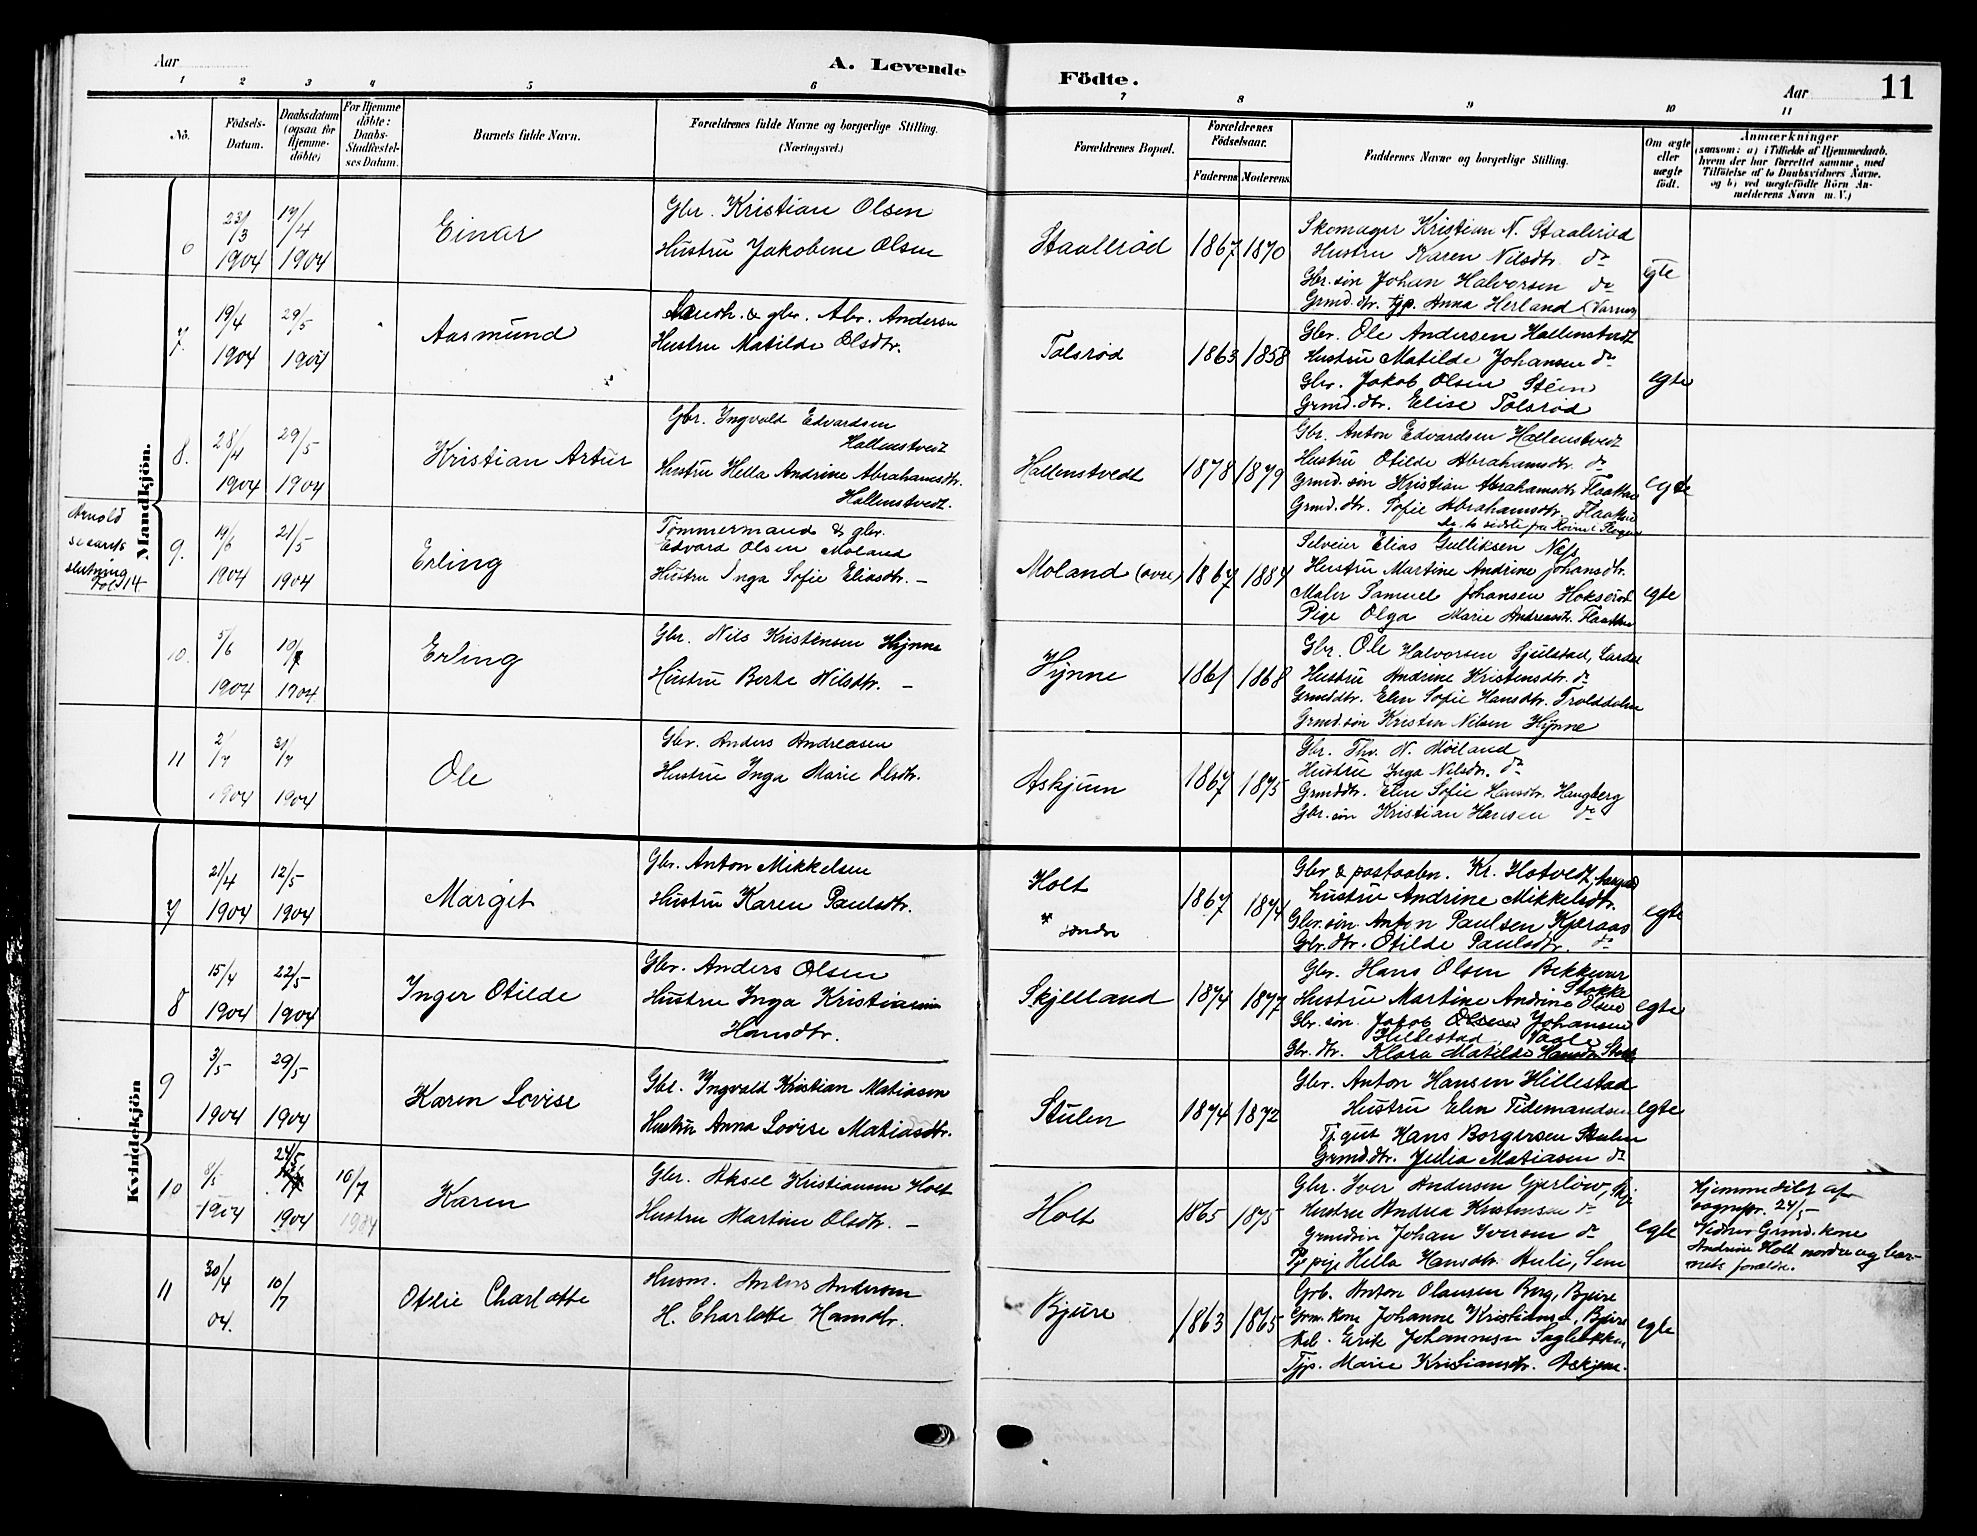 Aar
A. Levende
Födte.
Aar
11
1 2 3 4 5 6 7 8 9 10 11
No.
Födsels-
Datum.
Daabsdatum
(ogsaa för
Hjemme-
döbte)
For Hjemme
döbte:
Daabs-
Stadfæstel-
ses Datum.
Barnets fulde Navn.
Forældrenes fulde Navne og borgerlige Stilling.
(Næringsvei.)
Forældrenes Bopæl.
Forældrenes
Födselsaar.
Faderens Moderens
Faddernes Navne og borgerlige Stilling.
Om ægte
eller
uægte
födt.
Anmærkninger
(saasom: a) i Tilfælde af Hjemmedaab,
hvem der har forrettet samme, med
Tilföielse af to Daabsvidners Navne,
og b) ved uægtefödte Börn An-
melderens Navn m. V.)
Mandkjön.
6
23/3
1904
17/4
1904
Einar
Gbr. Kristian Olsen
Hustru Jakobene Olsen
Staalerød
1867 1870
Skomager Kristian N. Staalerød
Hustru Karen Nilsdtr. do
Gbr. søn Johan Halvorsen do
Grmd. dtr. tjp. Anna Herland
egte
7.
19/4
1904
29/5
1904
Aasmund
gbr. Abr. Andersen
Hustru Matilde Olsdtr.
Tolsrød
1863 1858
Gbr. Ole Andersen Hallenstvedt
Hustru Matilde Johansen do
Gbr. Jakob Olsen Stein
Grmd. dtr. Elise Tolsrød
egte
8.
28/4
1904
29/5
1904
Kristian Artur
Gbr. Ingvald Edvardsen
Hallenstvedt
Hustru Hella Andrine Abrahamsdtr.
Hallenstvedt.
Hallenstvedt
1878 1879
Gbr. Anton Edvardsen Hallenstvedt
Hustru Otilde Abrahamsdtr. do
Grmd. søn Kristian Abrahamsdtr. Flaatten
Grmd. dtr. Sofie Abrahamsdtr. Flaatten
de to sidste fra
egte
Arnold
se aarets
slutning
Fol. 14.
9.
1904
21/5
1904
Erling
Tømmermand & gbr.
Edvard Olsen Moland
Hustru Inga Sofie Eliasdtr. —
Moland (øvre)
1867 1884
Selveier Elias Gulliksen Næs
Hustru Martine Andrine Johansdtr.
Maler Samuel Johansen Hokserød
Pige Olga Marie Andreasdtr. Flaatten
egte
10.
5/6
1904
10/7
1904
Erling
Gbr. Nils Kristensen Hynne
Hustru Berte Nilsdtr. —
Hynne
1861 1868
Gbr. Ole Halvorsen Sjulstad, Lardal
Hustru Andrine Kristensdtr. do
Grmddtr. Elen Sofie Hansdtr. Trolddalen
Grmd. søn Kristen Nilsen Hynne
11
2/7
1904
31/7
1904
Ole
Gbr. Anders Andreasen
Hustru Inga Marie Olsdtr.
Askjum
1867 1875
Gbr. Thv. N. Møiland
Hustru Inga Nilsdtr. do
Grmddtr. Elen Sofie Hansdtr. Haugberg
Gbr. søn Kristian Hansen do
Kvindekjön
7
21/4
1904
12/5
1904
Margit
Gbr. Anton Mikkelsen
Hustru Karen Paulsdtr.
Holt
søndre
1867 1874
Gbr & postaabn. Kr. Hotvedt,
hustru Andrine Mikkelsdtr.
Gbr. søn Anton Paulsen Kjæraas
Gbr. dtr. Otilde Paulsdtr. do
egte
8
15/4
1904
22/5
1904
Inger Otilde
Gbr. Anders Olsen
Hustru Inga Kristiansine
Hansdtr.
Skjelland
1874 1877
Gbr. Hans Olsen Bekkevar
Stokke
Hustru Martine Andrine Olsen
Gbr. søn Jakob Olsen Johansen
Hillestad, Vaale
Gbr. dtr. Klara Matilde Hansdtr. Stokke
egte
9
3/5
1904
29/5
1904
Karen Lovise
Gbr. Ingvald Kristian Matiasen
Hustru Anna Lovise Matiasdtr.
Stulen
1874 1872
Gbr. Anton Hansen Hillestad
Hustru Elen Tidemandsen
Tj. gut Hans Borgersen Stulen
Grmd. dtr. Julia Matiasen do
egte
10
8/5
1904
24/5
1904
10/7
1904
Karen
Gbr. Aksel Kristiansen Holt
Hustru Martine Olsdtr. —
Holt
1865 1875
Gbr. Iver Andersen Gjerløw,
Hustru Andrea Kristensen do
Grmdsøn Johan Iversen do
Tj. pige Hella Hansdtr. Auli, Sem
egte
Hjemmedøbt af
sognepr. 24/5—
Vidner Grmd. kone
Andrine Holt nordre og bar-
nets forældre.
11
30/4
04.
10/7
Otilie Charlotte
Husm. Anders Andersen
H. Charlotte Hansdtr.
Bjure
1863 1865
Grb. Anton Olausen Berg, Bjure
Grm. kone Johanne Kristiansen, Bjure
Arb. Erik Johannesen Sagløkka,
Tjp. Marie Kristiansdtr. Askjum.
egte